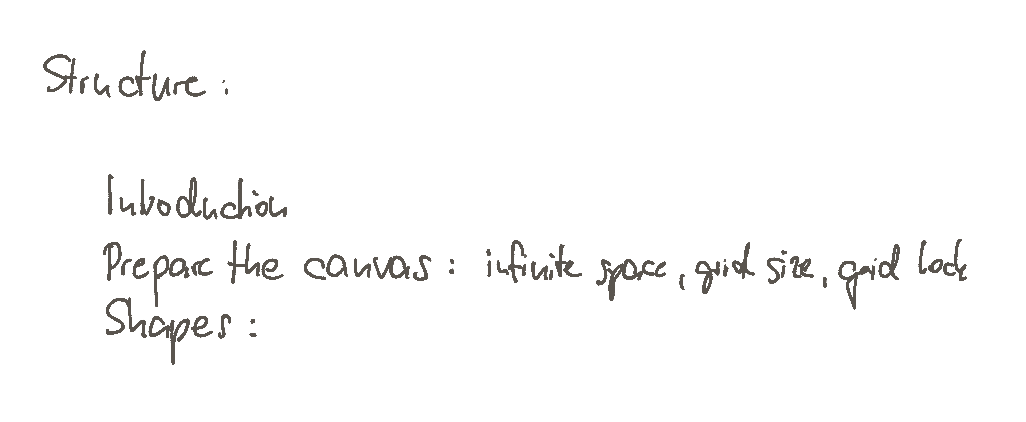 Structure:
Introduction
Prepare the canvas: infinite space, grid size, grid lock
Shapes: